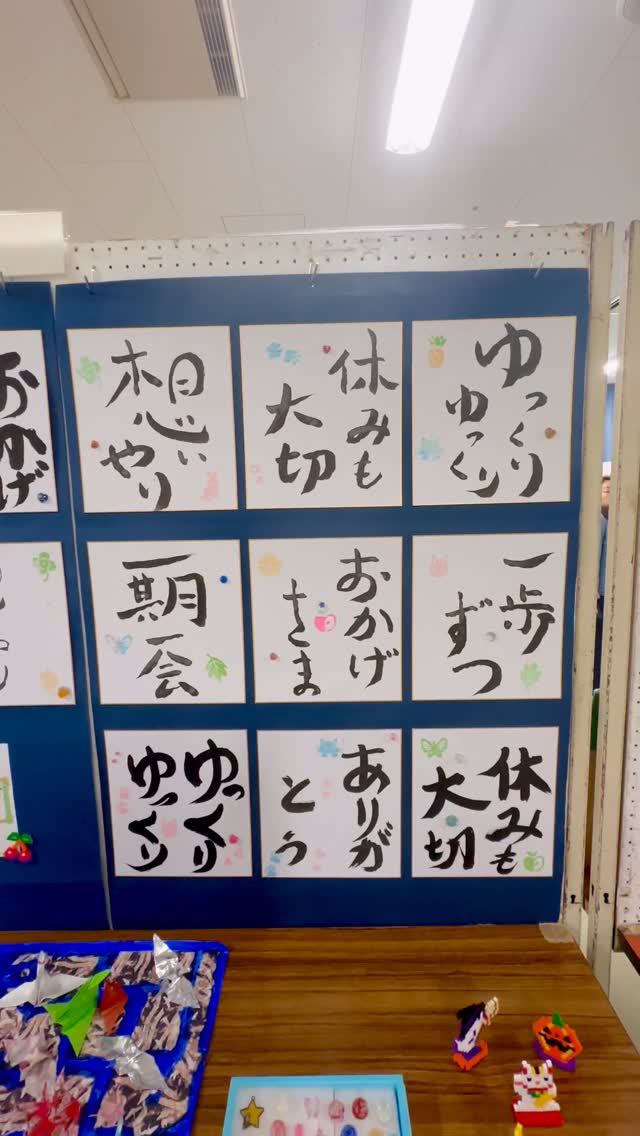 ゆっくり
ゆっくり
休みも
大切
想い
やり
おかげ
一歩
ずつ
おかげ
さま
一期
一会
休みも
大切
ありが
とう
ゆっくり
ゆっくり